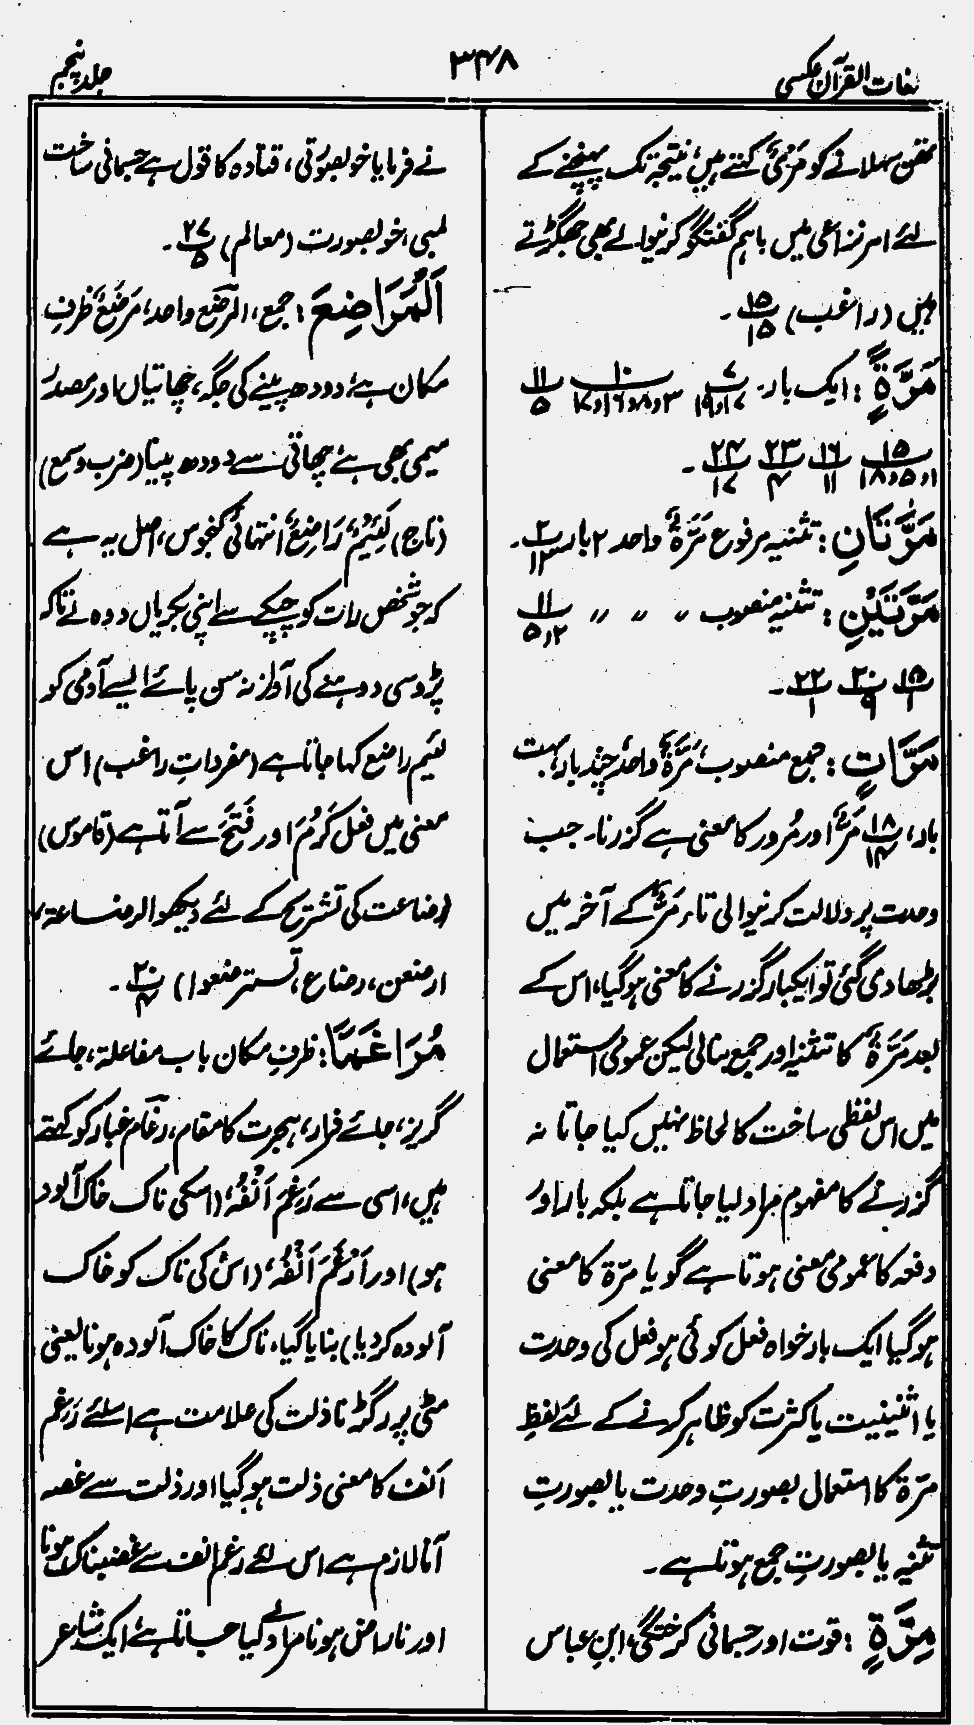 لغات القرآن عکسی
۳۴۸
جلد پنجم
تھن سہلانے کو مَرْیٌ کہتے ہیں، نتیجہ تک پہنچنے کے
لئے امر نزاعی میں باہم گفتگو کرنیوالے بھی جھگڑتے
ہیں (راغب) ۱۵/۱۵ ۔
مَرَّۃٍ : ایک بار۔ ۷/۱۷و۱۹ ۱۰/۳و۸و۱۶و۱۷ ۱۱/۵
۱۵/۱و۵و۱۸ ۱۶/۱۱ ۲۳/۴ ۲۴/۱۷ ۔
مَرَّتَانِ : تثنیہ مرفوع مَرَّۃٌ واحد ۲ بار ۲/۱۳ ۔
مَرَّتَیْنِ : تثنیہ منصوب 〃 〃 〃 ۱۱/۲و۵
۱۵/۱ ۲۰/۹ ۲۲/۱ ۔
مَرَّاتٍ : جمع منصوب، مَرَّۃٌ واحد، چند بار، بہت
بار، ۱۸/۱۴ مَرٌّ اور مُرور کا معنی ہے گزرنا۔ جب
وحدت پر دلالت کرنیوالی تاء مَرٌّ کے آخر میں
بڑھا دی گئی تو ایکبار گزرنے کا معنی ہو گیا، اس کے
بعد مَرَّۃٌ کا تثنیہ اور جمع بنالی لیکن عمومی استعمال
میں اس لفظی ساخت کا لحاظ نہیں کیا جاتا نہ
گزرنے کا مفہوم مراد لیا جاتا ہے بلکہ بار اور
دفعہ کا عمومی معنی ہوتا ہے گویا مرّۃ کا معنی
ہو گیا ایک بار خواہ فعل کوئی ہو فعل کی وحدت
یا اثنینیت یا کثرت کو ظاہر کرنے کے لئے لفظِ
مرّۃ کا استعمال بصورتِ وحدت یا بصورتِ
تثنیہ یا بصورتِ جمع ہوتا ہے۔
مِرَّۃٍ : قوت اور جسمانی کرختگی، ابن عباس
نے فرمایا خوبصورتی، قتادہ کا قول ہے جسمانی ساخت
لمبی، خوبصورت (معالم) ۲۷/۵ ۔
اَلْمَرَاضِعَ : جمع، المرضع واحد، مَرْضَعٌ ظرفِ
مکان ہے، دودھ پینے کی جگہ، چھاتیاں اور مصدر
میمی بھی ہے چھاتی سے دودھ پینا (ضرب و سمع)
(تاج) لَئِیْمٌ، رَاضِعٌ انتہائی کنجوس، اصل یہ ہے
کہ جو شخص رات کو چپکے سے اپنی بکریاں دوہ لے تاکہ
پڑوسی دوہنے کی آواز نہ سن پائے ایسے آدمی کو
لئیم راضع کہا جاتا ہے (مفرداتِ راغب) اس
معنی میں فعل کَرُمَ اور فَتَحَ سے آتا ہے (قاموس)
(رضاعت کی تشریح کے لئے دیکھو الرضاعۃ،
ارضعن، رضاع، تسترضعوا) ۲۰/۴ ۔
مُرَاغَمًا : ظرفِ مکان باب مفاعلۃ، جائے
گریز، جائے فرار، ہجرت کا مقام، رَغَام غبار کو کہتے
ہیں، اسی سے رَغِمَ اَنْفُہٗ، (اسکی ناک خاک آلود
ہو) اور اَرْغَمَ اَنْفُہٗ، (اس کی ناک کو خاک
آلودہ کر دیا) بنایا گیا، ناک کا خاک آلودہ ہونا یعنی
مٹی پر رگڑنا ذلت کی علامت ہے اسلئے رَغْمِ
اَنف کا معنی ذلت ہو گیا اور ذلت سے غصہ
آنا لازم ہے اس لئے رغم انف سے غضبناک ہونا
اور ناراض ہونا مراد لے لیا جاتا ہے، ایک شاعر